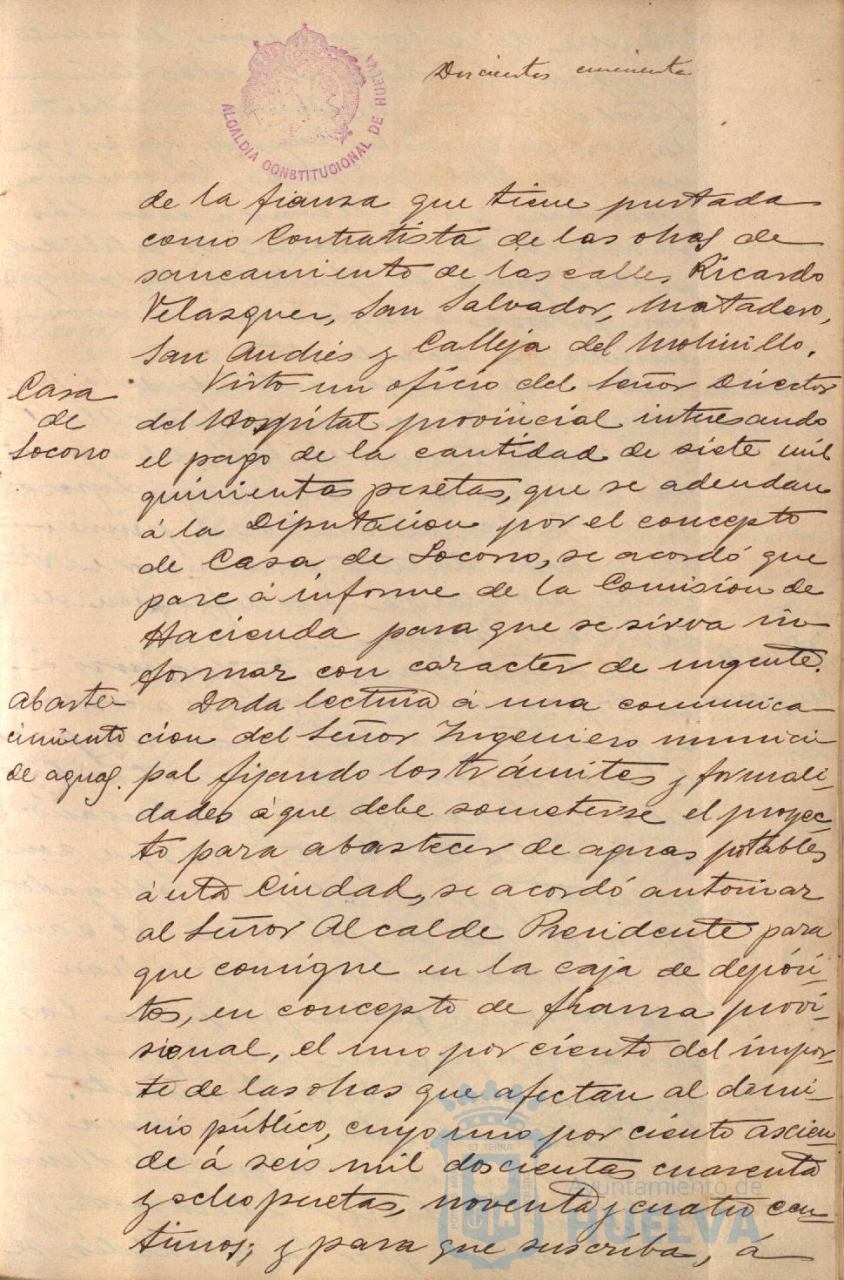 Doscientos cincuenta
ALCALDIA CONSTITUCIONAL DE HUELVA
de la fianza que tiene prestada
como Contratista de las obras de
saneamiento de las calles Ricardo
Velazquez, San Salvador, Matadero,
San Andrés y Calleja del Molinillo.
Casa
de
Socorro
Visto un oficio del Señor Director
del Hospital provincial interesando
el pago de la cantidad de siete mil
quinientas pesetas, que se adeudan
á la Diputacion por el concepto
de Casa de Socorro, se acordó que
pase á informe de la Comisión de
Hacienda para que se sirva in
formar con caracter de urgente.
Abaste-
cimiento
de aguas.
Dada lectura á una comunica-
cion del Señor Ingeniero munici
pal fijando los trámites y formali-
dades á que debe someterse el proyec-
to para abastecer de aguas potables
á esta Ciudad, se acordó autorizar
al Señor Alcalde Presidente para
que consigne en la caja de depósi-
tos, en concepto de fianza provi-
sional, el uno por ciento del impor-
te de las obras que afectan al domi-
nio público, cuyo uno por ciento ascien-
de á seis mil doscientas cuarenta
y ocho pesetas, noventa y cuatro cen-
timos; y para que suscriba, á
Ayuntamiento de
HUELVA